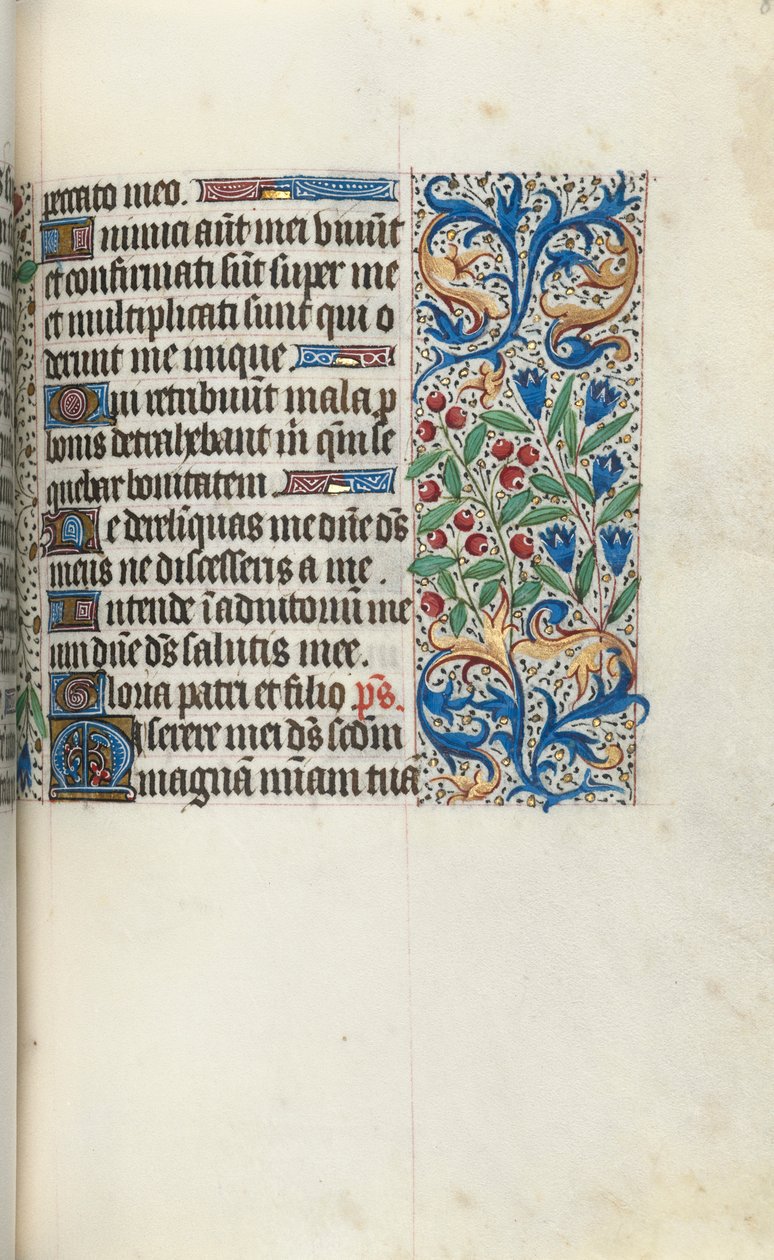 peccato meo.
Inimici aūt mei vivūt
et confirmati sūt super me
et multiplicati sunt qui o
derunt me inique
Qui retribuūt mala p
bonis detrahebant m̄ qm̄ se
quebar bonitatem
Ne derelinquas me dn̄e ds̄
meus ne discesseris a me.
Intende ī adiutoriū me
um dn̄e ds̄ salutis mee.
Gloria patri et filio ps̄.
Miserere mei ds̄ scdm̄
magnā mi̅am tuā